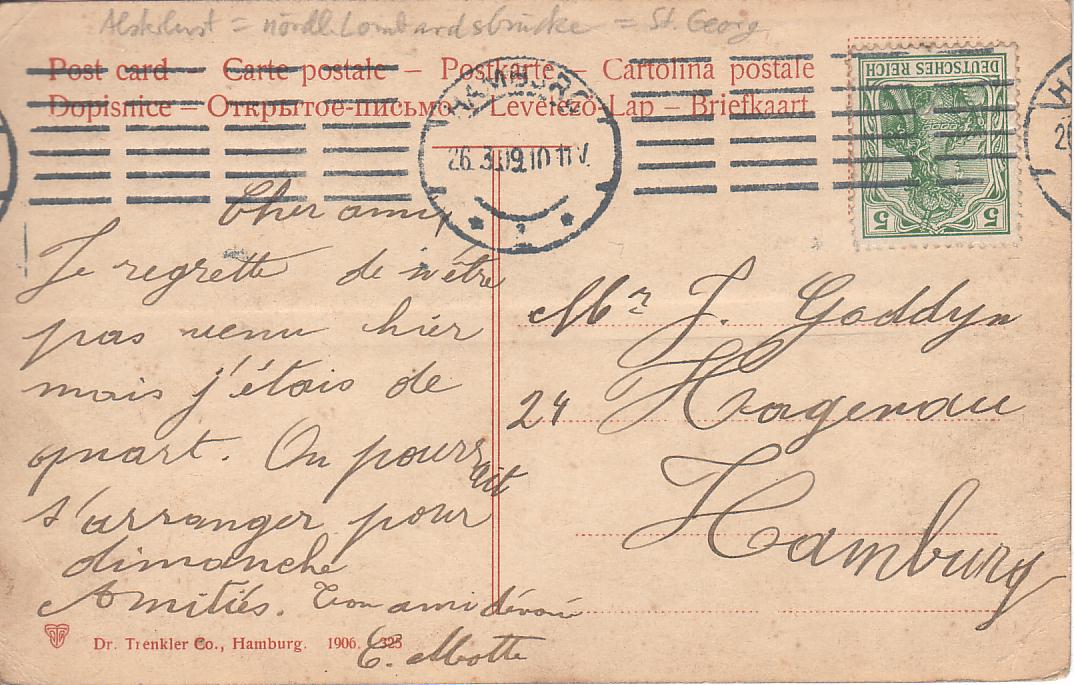 Alsterlust = nördl. Lombardsbrücke = St. Georg
Post card – Carte postale – Postkarte – Cartolina postale
Dopisnice – Открытое письмо – Levelező-Lap – Briefkaart
HAMBURG
26.3.09.10-11V.
* 1 *
DEUTSCHES REICH
5 5
Cher ami,
Je regrette de n'être
pas venu hier
mais j'étais de
quart. On pourrait
s'arranger pour
dimanche
Amitiés. Ton ami dévoué
C. Motte
Mr J. Goddyn
24 Hagenau
Hamburg
Dr. Trenkler Co., Hamburg. 1906. 325